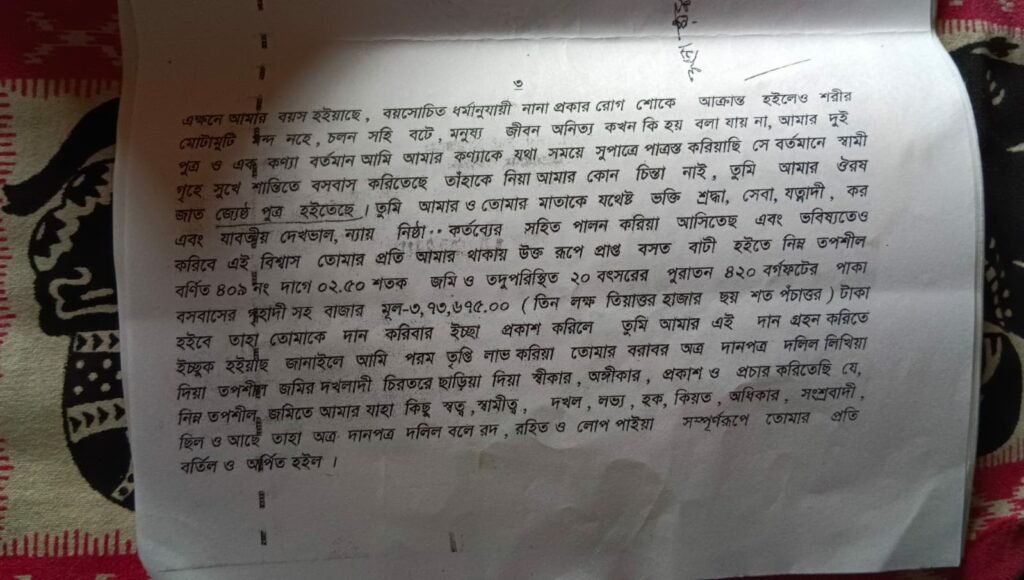 ৩
এক্ষনে আমার বয়স হইয়াছে, বয়সোচিত ধর্মানুযায়ী নানা প্রকার রোগ শোকে আক্রান্ত হইলেও শরীর
মোটামুটি মন্দ নহে, চলন সহি বটে, মনুষ্য জীবন অনিত্য কখন কি হয় বলা যায় না, আমার দুই
পুত্র ও এক কণ্যা বর্তমান আমি আমার কণ্যাকে যথা সময়ে সুপাত্রে পাত্রস্ত করিয়াছি সে বর্তমানে স্বামী
গৃহে সুখে শান্তিতে বসবাস করিতেছে তাঁহাকে নিয়া আমার কোন চিন্তা নাই, তুমি আমার ঔরষ
জাত জ্যেষ্ঠ পুত্র হইতেছে। তুমি আমার ও তোমার মাতাকে যথেষ্ট ভক্তি শ্রদ্ধা, সেবা, যত্নাদী, কর
এবং যাবতীয় দেখভাল, ন্যায় নিষ্ঠা·· কর্তব্যের সহিত পালন করিয়া আসিতেছ এবং ভবিষ্যতেও
করিবে এই বিশ্বাস তোমার প্রতি আমার থাকায় উক্ত রূপে প্রাপ্ত বসত বাটী হইতে নিম্ন তপশীল
বর্ণিত ৪০৯ নং দাগে ০২.৫০ শতক জমি ও তদুপরিস্থিত ২০ বৎসরের পুরাতন ৪২০ বর্গফটের পাকা
বসবাসের গৃহাদী সহ বাজার মূল-৩,৭৩,৬৭৫.০০ ( তিন লক্ষ তিয়াত্তর হাজার ছয় শত পঁচাত্তর ) টাকা
হইবে তাহা তোমাকে দান করিবার ইচ্ছা প্রকাশ করিলে তুমি আমার এই দান গ্রহন করিতে
ইচ্ছুক হইয়াছি জানাইলে আমি পরম তৃপ্তি লাভ করিয়া তোমার বরাবর অত্র দানপত্র দলিল লিখিয়া
দিয়া তপশীল জমির দখলাদী চিরতরে ছাড়িয়া দিয়া স্বীকার, অঙ্গীকার, প্রকাশ ও প্রচার করিতেছি যে,
নিম্ন তপশীল জমিতে আমার যাহা কিছু স্বত্ব, স্বামীত্ব, দখল, লভ্য, হক, কিয়ত, অধিকার, সংশ্রবাদী,
ছিল ও আছে তাহা অত্র দানপত্র দলিল বলে রদ, রহিত ও লোপ পাইয়া সম্পূর্ণরূপে তোমার প্রতি
বর্তিল ও অর্পিত হইল।